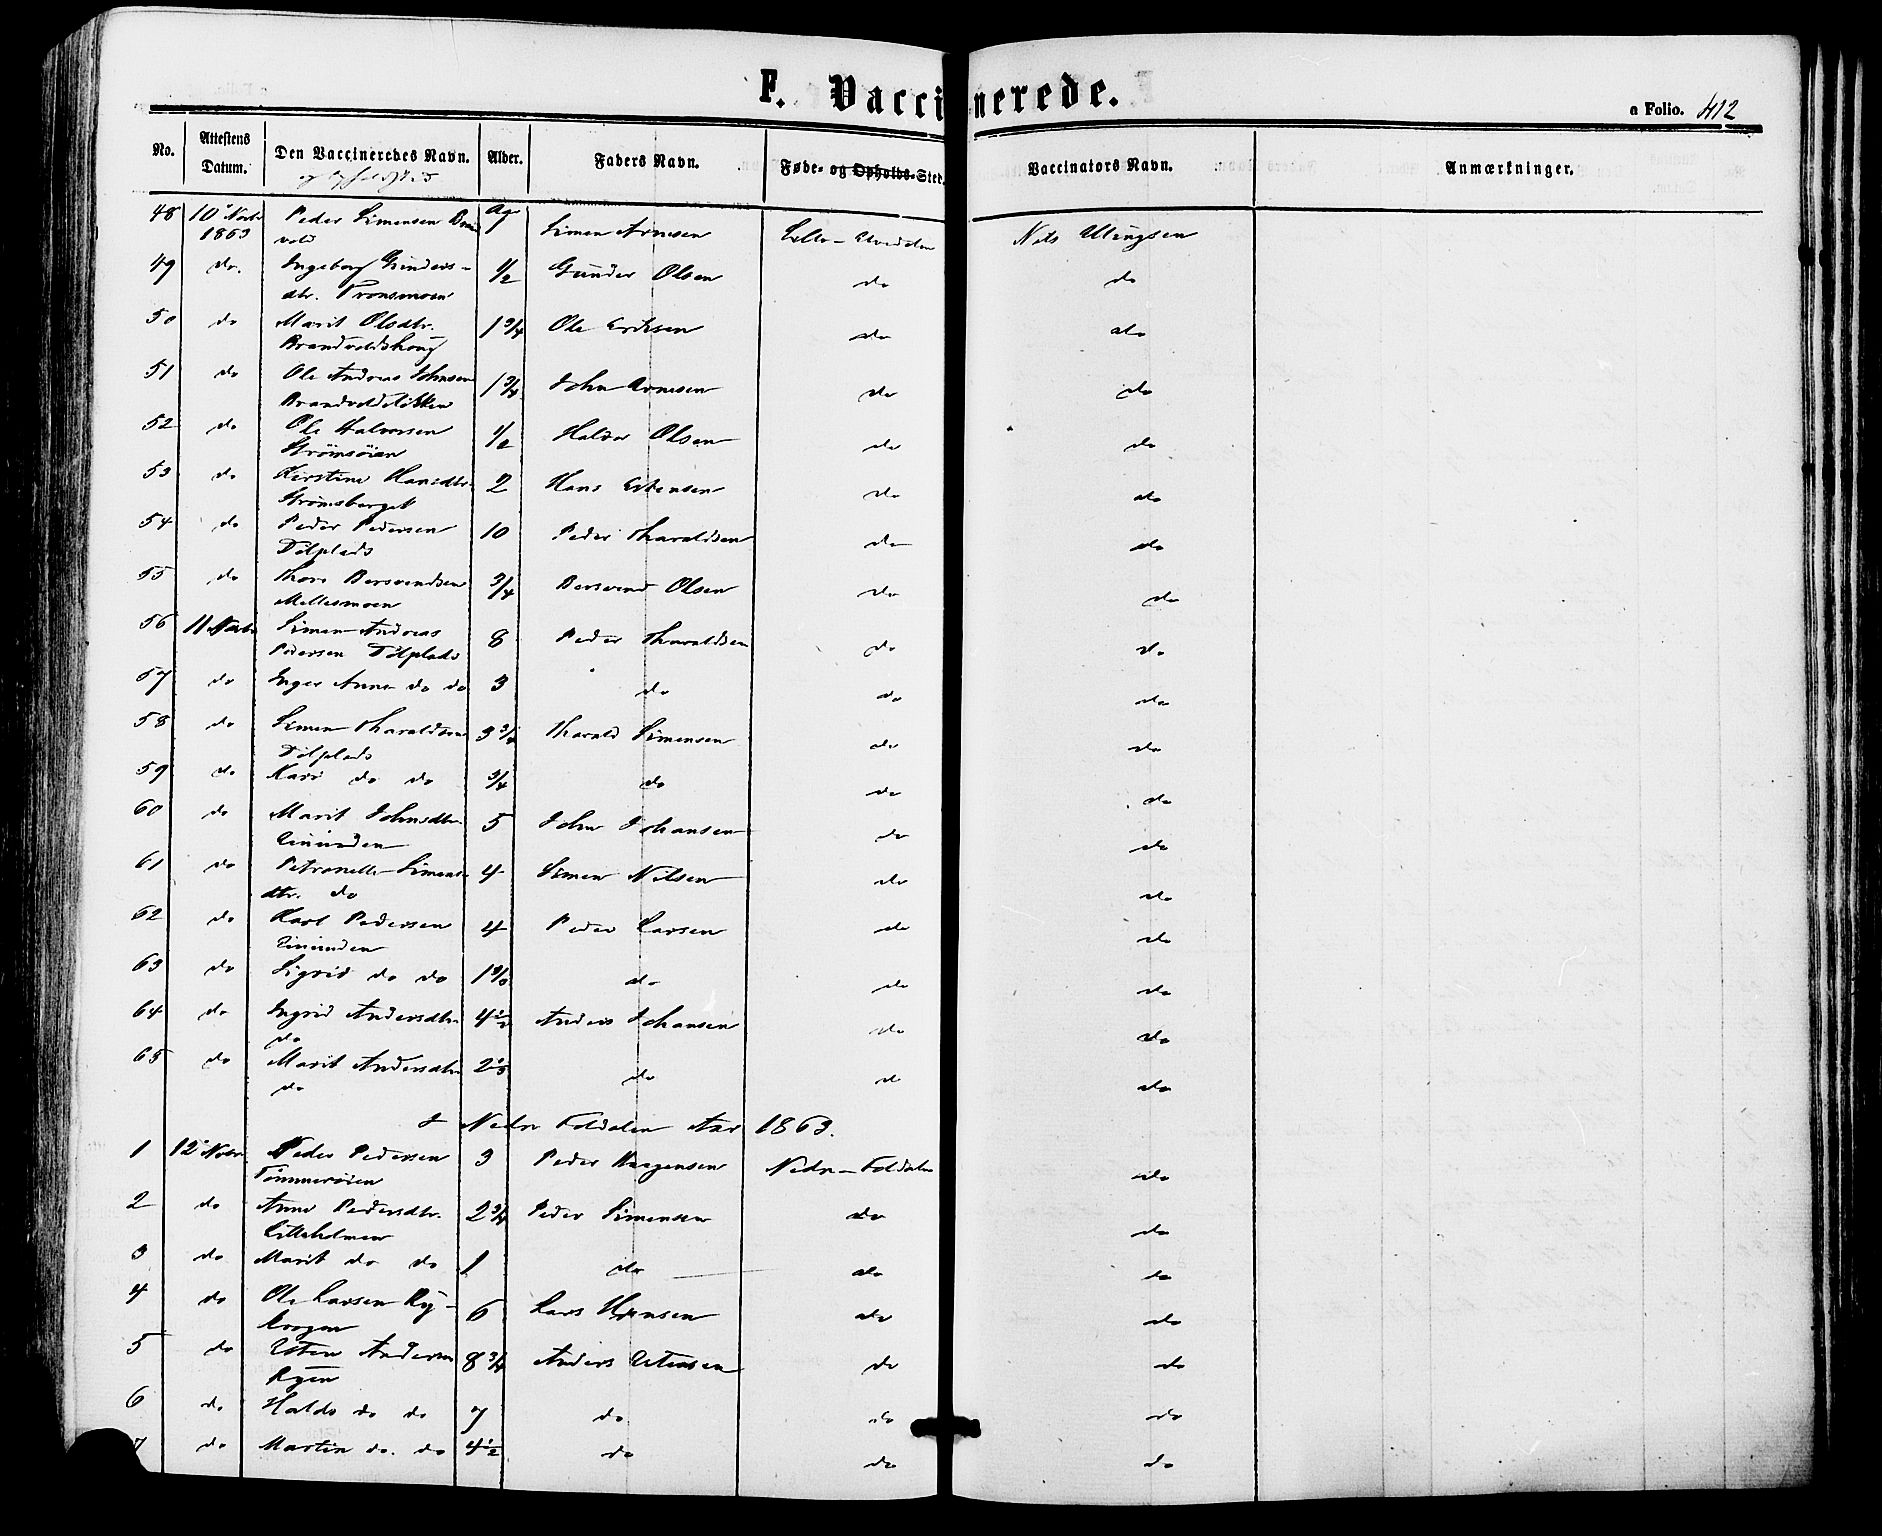 F. Vaccinerede.
a Folio. 412
No. Attestens Datum. Den Vaccineredes Navn. Alder. Faders Navn. Føde- og Opholds-Sted. Vaccinators Navn. Anmærkninger.
og opholdssted
48 10 Novbr 1863 Peder Simensen 7 Simen Arnesen Lille-Elvedalen Nils Utingsen
49 do. Ingeborg Gunders- 1/2 Gunder Olsen do do
dtr. Tronsmoen
50 do Marit Olsdtr. 1 3/4 Ole Eriksen do do
Brandvoldshoug
51 do Ole Andreas Johnsen 1 3/4 John Arnesen do do
Brandvoldsløkken
52 do Ole Halvorsen 1/2 Haldor Olsen do do
Strömsöien
53 do Kirstine Hansdtr. 2 Hans Estensen do do
Strömsberget
54 do Peder Pedersen 10 Peder Tharaldsen do do
Dölplads
55 do Thore Bersvendsen 3/4 Bersvend Olsen do do
Mellesmoen
56 11 Novbr Simen Andreas 8 Peder Tharaldsen do do
Pedersen Dölplads
57 do Inger Anne do do 3 do do do
58 do Simen Tharaldsen 3 3/4 Tharald Simensen do do
Dölplads
59 do Kari do do 3/4 do do do
60 do Marit Johnsdtr. 5 John Johansen do do
61 do Petronelle Simens- 4 Simen Nilsen do do
dtr. do
62 do Karl Pedersen 4 Peder Larsen do do
63 do Sigrid do do 1 do do do
64 do Ingrid Andersdtr. 4 1/2 Anders Johansen do do
do
65 do Marit Andersdtr 2 do do do
do
I Nedre Foldalen Aar 1863.
1 12 Novbr. Peder Pedersen 3 Peder Haagensen Nedre-Foldalen do
Tömmeröien
2 do Anne Pedersdtr. 2 3/4 Peder Simensen do do
Lilleholmen
3 do Marit do do 1 do do do
4 do Ole Larsen Ry- 6 Lars Hansen do do
haugen
5 do Esten Andersen 8 3/4 Anders Estensen do do
Ryen
6 do Haldo do do 7 do do do
7 do Martin do. do 4 1/2 do do do